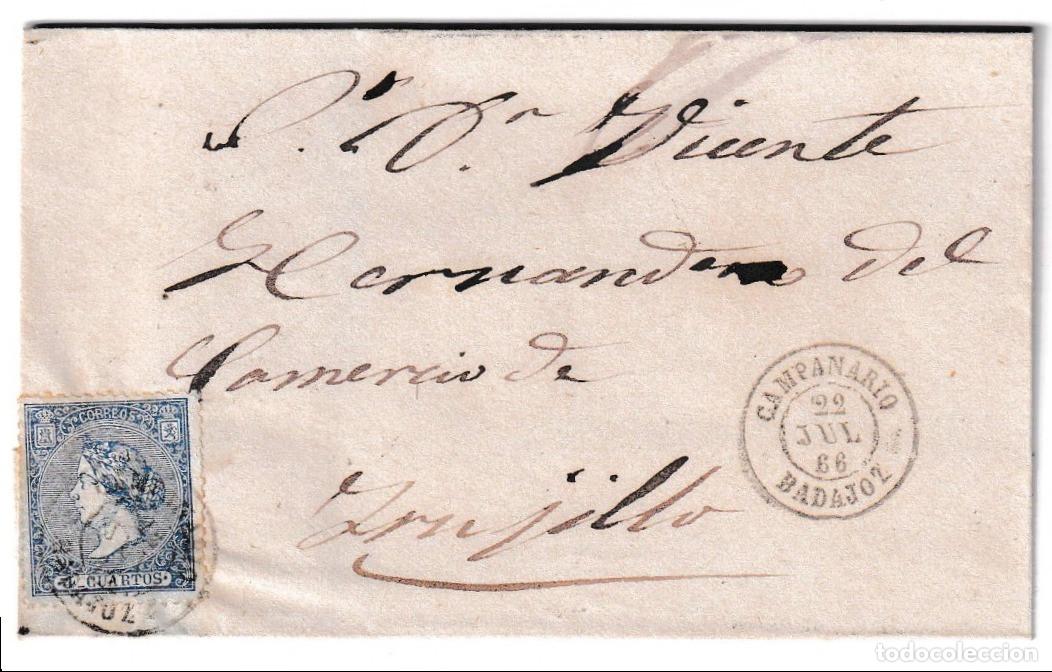 S.r D.n Vicente
Hernandez del
Comercio de
Trujillo
CAMPANARIO
22
JUL
66
BADAJOZ
CORREOS
CUARTOS
todocoleccion